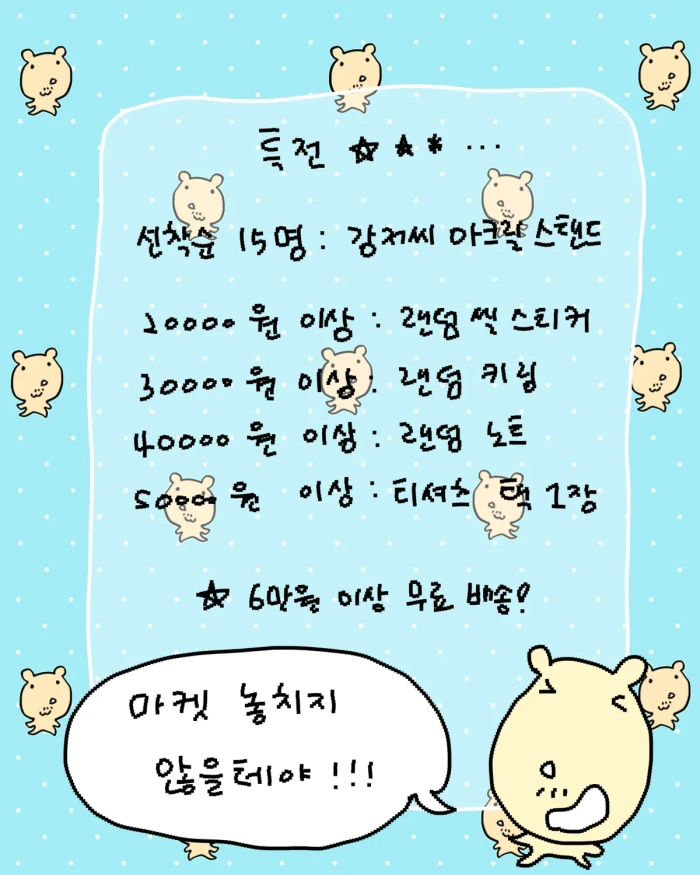 특전 ☆ ★ * ...
선착순 15명 : 강저씨 아크릴 스탠드
20000원 이상 : 랜덤 씰 스티커
30000원 이상 : 랜덤 키링
40000원 이상 : 랜덤 노트
50000원 이상 : 티셔츠 택 1장
☆ 6만원 이상 무료 배송!
마켓 놓치지
않을테야 !!!